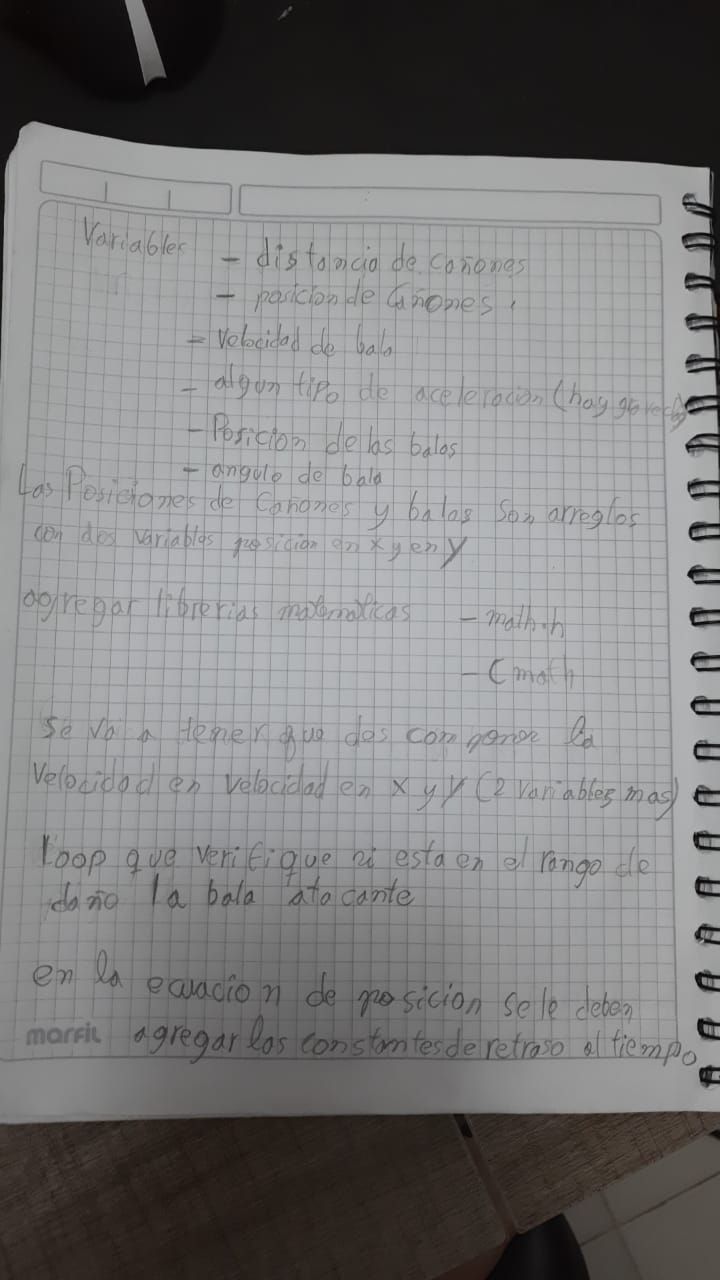 Variables - distancia de cañones
- posicion de Cañones.
- Velocidad de bala
- algun tipo de aceleracion (hay
- Posicion de las balas
- angulo de bala
Las Posiciones de Cañones y balas Son arreglos
con dos variables posicion en x y en y
agregar librerias matematicas - math.h
- Cmath
Se va a tener que des componer la
Velocidad en velocidad en x y y (2 variables mas)
Loop que verifique si esta en el rango de
daño la bala atacante
en la ecuacion de posicion se le deben
marfil agregar las constantes de retraso al tiempo